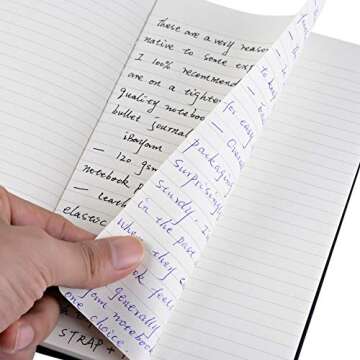 These are a very reason
native to some exp
I 100% recommend
are on a tighter
quality notebook
bullet journal
iBayam
— 120 gsm
notebook p
— Leath
elastic
STRAP +
for easy
— Over
packaging
surprisingly
sturdy. I
in the past
when they
look feel
generally
am notebook
one choice